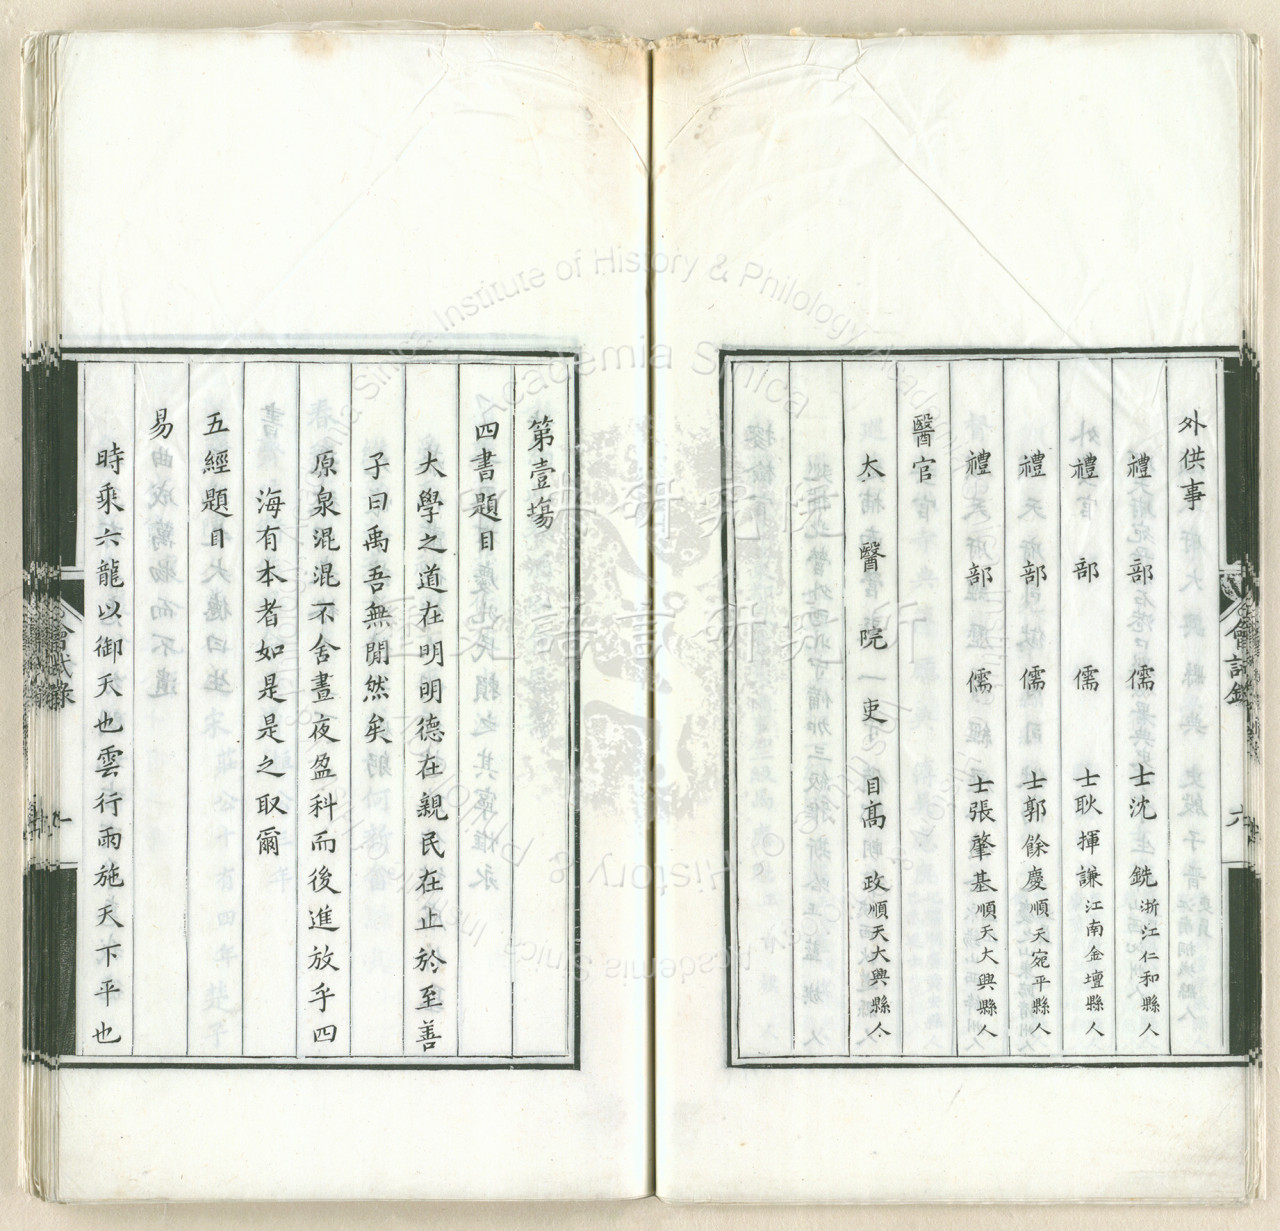 外供事
禮部儒士沈銑浙江仁和縣人
禮部儒士耿揮謙江南金壇縣人
禮部儒士郭餘慶順天宛平縣人
禮部儒士張肇基順天大興縣人
醫官
太醫院吏目高政順天大興縣人
會試錄
六
第壹場
四書題目
大學之道在明明德在親民在止於至善
子曰禹吾無閒然矣
原泉混混不舍晝夜盈科而後進放乎四
海有本者如是是之取爾
五經題目
易
時乘六龍以御天也雲行雨施天下平也
會試錄
Institute of History & Philology, Academia Sinica